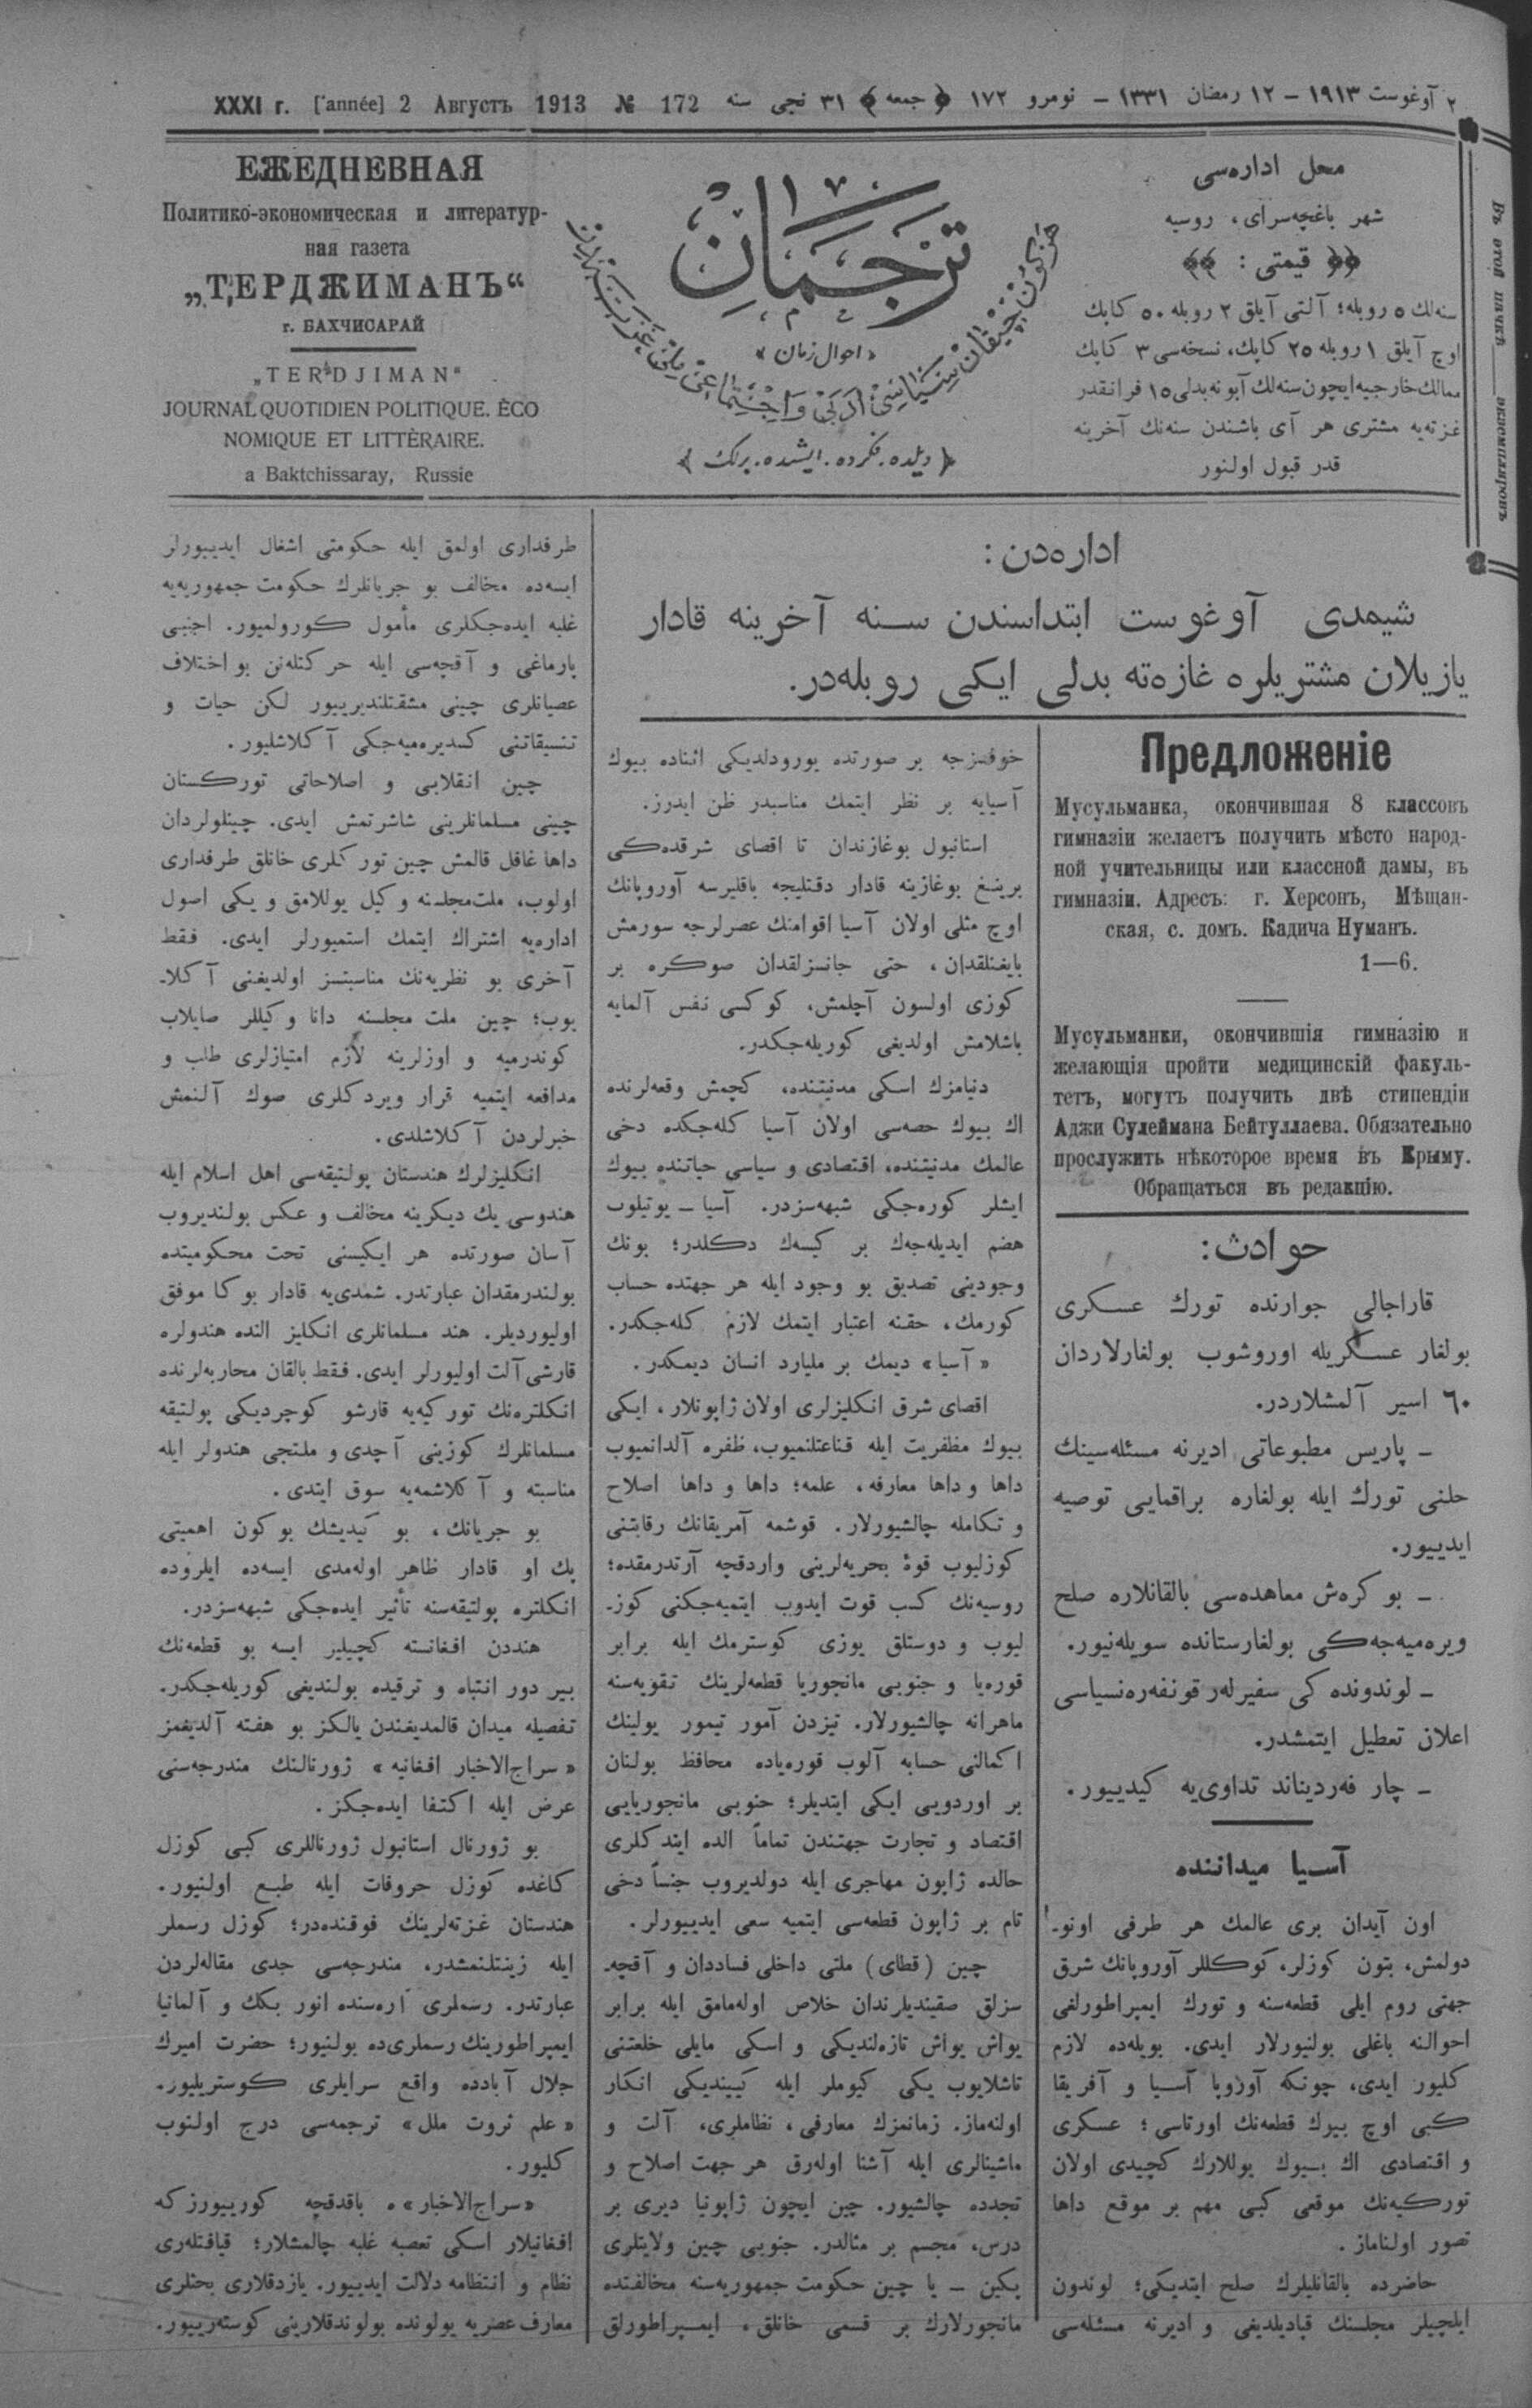 XXXI г. [année] 2 Августъ 1913 № 172 ٣١ نجی سنه ﴿ جمعه ﴾ نومرو ١٧٢ – ١٢ رمضان ١٣٣١ – ٢ آوغوست ١٩١٣
ЕЖЕДНЕВНАЯ
Политико-экономическая и литератур-
ная газета
„ТЕРДЖИМАНЪ“
г. БАХЧИСАРАЙ
„TERDJIMAN“
JOURNAL QUOTIDIEN POLITIQUE. ÈCO
NOMIQUE ET LITTÈRAIRE.
a Baktchissaray, Russie
ترجمان
« احوال زمان »
هر كون چیقان سیاسی، ادبی و اجتماعی ملی غزته در
﴿ دیلده. فكرده. ایشده. برلك ﴾
محل ادارەسی
شهر باغچه‌سرای، روسیه
﴿﴿ قیمتی : ﴾﴾
سنه‌لك ٥ روبله؛ آلتی آیلق ٢ روبله ٥٠ كاپك
اوچ آیلق ١ روبله ٢٥ كاپك، نسخه‌سی ٣ كاپك
ممالك خارجیه ایچون سنه‌لك آبونه بدلی ١٥ فرانقدر
غزته‌یه مشتری هر آی باشندن سنه‌نك آخرینه
قدر قبول اولنور
Въ этой пачкѣ ____ экземпляровъ
ادارەدن :
شیمدی آوغوست ابتداسندن سنه آخرینه قادار
یازیلان مشتریلره غازەته بدلی ایكی روبله‌در.
Предложеніе
Мусульманка, окончившая 8 классовъ
гимназіи желаетъ получить мѣсто народ-
ной учительницы или классной дамы, въ
гимназіи. Адресъ: г. Херсонъ, Мѣщан-
ская, с. домъ. Кадича Нуманъ.
1—6.
Мусульманки, окончившія гимназію и
желающія пройти медицинскій факуль-
тетъ, могутъ получить двѣ стипендіи
Аджи Сулеймана Бейтуллаева. Обязательно
прослужить нѣкоторое время въ Крыму.
Обращаться въ редакцію.
حوادث :
قاراجالی جوارنده تورك عسكری
بولغار عسكریله اوروشوب بولغارلاردان
٦٠ اسیر آلمشلاردر.
ـ پاریس مطبوعاتی ادیرنه مسئله‌سینك
حلنی تورك ایله بولغاره براقمایی توصیه
ایدییور.
ـ بوكرەش معاهده‌سی بالقانلاره صلح
ویرەمیه‌جه‌كی بولغارستانده سویله‌نیور.
ـ لوندونده كی سفیرلەر قونفەرەنسیاسی
اعلان تعطیل ایتمشدر.
ـ چار فەردیناند تداوی‌یه كیدییور.
آسیا میداننده
اون آیدان بری عالمك هر طرفی اونو-
دولمش، بتون كوزلر، كوكللر آوروپانك شرق
جهتی روم ایلی قطعه‌سنه و تورك ایمپراطورلغی
احوالنه باغلی بولنیورلار ایدی. بویله‌ده لازم
كلیور ایدی، چونكه آوروپا آسیا و آفریقا
كبی اوچ بیوك قطعه‌نك اورتاسی ؛ عسكری
و اقتصادی اك بیوك یوللارك كچیدی اولان
توركیه‌نك موقعی كبی مهم بر موقع داها
تصور اولناماز .
حاضرده بالقانلیلرك صلح ایتدیكی؛ لوندون
ایلچیلر مجلسنك قپادیلدیغی و ادیرنه مسئله‌سی
خوفسزجه بر صورتده یورودلدیكی اثناده بیوك
آسیایه بر نظر ایتمك مناسبدر ظن ایدرز.
استانبول بوغازندان تا اقصای شرقده‌كی
برینغ بوغازینه قادار دقتلیجه باقلیرسه آوروپانك
اوچ مثلی اولان آسیا اقوامنك عصرلرجه سورمش
بایغنلقدان، حتی جانسزلقدان صوكره بر
كوزی اولسون آچلمش، كوكسی نفس آلمایه
باشلامش اولدیغی كوریله‌جكدر.
دنیامزك اسكی مدنیتنده، كچمش وقعه‌لرنده
اك بیوك حصه‌سی اولان آسیا كله‌جكده دخی
عالمك مدنیتنده، اقتصادی و سیاسی حیاتنده بیوك
ایشلر كوره‌جكی شبهه‌سزدر. آسیا ـ یوتیلوب
هضم ایدیله‌جه‌ك بر كیسه‌ك دكلدر؛ بونك
وجودینی تصدیق بو وجود ایله هر جهتده حساب
كورمك، حقنه اعتبار ایتمك لازم كله‌جكدر.
« آسیا » دیمك بر ملیارد انسان دیمكدر .
اقصای شرق انكلیزلری اولان ژاپونلار، ایكی
بیوك مظفریت ایله قناعتلنمیوب، ظفره آلدانمیوب
داها و داها معارفه، علمه؛ داها و داها اصلاح
و تكامله چالشیورلار. قوشمه آمریقانك رقابتنی
كوزلیوب قوۀ بحریه‌لرینی واردقچه آرتدرمقده؛
روسیه‌نك كسب قوت ایدوب ایتمیه‌جكنی كوز-
لیوب و دوستلق یوزی كوسترمك ایله برابر
قوره‌یا و جنوبی مانجوریا قطعه‌لرینك تقویه‌سنه
ماهرانه چالشیورلار. تیزدن آمور تیمور یولینك
اكمالنی حسابه آلوب قوره‌یاده محافظ بولنان
بر اوردویی ایكی ایتدیلر؛ جنوبی مانجوریایی
اقتصاد و تجارت جهتندن تماماً الده ایتدكلری
حالده ژاپون مهاجری ایله دولدیروب جنساً دخی
تام بر ژاپون قطعه‌سی ایتمیه سعی ایدییورلر .
چین (قطای) ملتی داخلی فساددان و آقچه-
سزلق صقیندیلرندان خلاص اوله‌مامق ایله برابر
یواش یواش تازه‌لندیكی و اسكی مایلی خلعتنی
تاشلایوب یكی كیوملر ایله كییندیكی انكار
اولنه‌ماز. زمانمزك معارفی، نظاملری، آلت و
ماشینالری ایله آشنا اوله‌رق هر جهت اصلاح و
تجدده چالشیور. چین ایچون ژاپونیا دیری بر
درس، مجسم بر مثالدر. جنوبی چین ولایتلری
یكین ـ یا چین حكومت جمهوریه‌سنه مخالفتده
مانجورلارك بر قسمی خانلق، ایمپراطورلق
طرفداری اولمق ایله حكومتی اشغال ایدییورلر
ایسه‌ده مخالف بو جریانلرك حكومت جمهوریه‌یه
غلبه ایده‌جكلری مأمول كورولمیور. اجنبی
پارماغی و آقچه‌سی ایله حركتله‌نن بو اختلاف
عصیانلری چینی مشقتلندیرییور لكن حیات و
تنسیقاتنی كسدیره‌میه‌جكی آكلاشلیور.
چین انقلابی و اصلاحاتی توركستان
چینی مسلمانلرینی شاشرتمش ایدی. چینلولردان
داها غافل قالمش چین توركلری خانلق طرفداری
اولوب، ملت‌مجلسنه وكیل یوللامق و یكی اصول
اداره‌یه اشتراك ایتمك استمیورلر ایدی. فقط
آخری بو نظریه‌نك مناسبتسز اولدیغنی آكلا-
یوب؛ چین ملت مجلسنه دانا وكیللر صایلاب
كوندرمیه و اوزلرینه لازم امتیازلری طلب و
مدافعه ایتمیه قرار ویردكلری صوك آلنمش
خبرلردن آكلاشلدی.
انكلیزلرك هندستان پولتیقه‌سی اهل اسلام ایله
هندوسی یك دیكرینه مخالف و عكس بولندیروب
آسان صورتده هر ایكیسنی تحت محكومیتده
بولندرمقدان عبارتدر. شمدی‌یه قادار بوكا موفق
اولیوردیلر. هند مسلمانلری انكلیز النده هندولره
قارشی آلت اولیورلر ایدی. فقط بالقان محاربه‌لرنده
انكلتره‌نك توركیه‌یه قارشو كوچردیكی پولتیقه
مسلمانلرك كوزینی آچدی و ملتجی هندولر ایله
مناسبته و آكلاشمه‌یه سوق ایتدی.
بو جریانك، بو كیدیشك بوكون اهمیتی
پك او قادار ظاهر اوله‌مدی ایسه‌ده ایلروده
انكلتره پولتیقه‌سنه تأثیر ایده‌جكی شبهه‌سزدر.
هنددن افغانسته كچیلیر ایسه بو قطعه‌نك
بیر دور انتباه و ترقیده بولندیغی كوریله‌جكدر.
تفصیله میدان قالمدیغندن یالكز بو هفته آلدیغمز
« سراج‌الاخبار افغانیه » ژورنالنك مندرجه‌سنی
عرض ایله اكتفا ایده‌جكز.
بو ژورنال استانبول ژورناللری كبی كوزل
كاغده كوزل حروفات ایله طبع اولنیور.
هندستان غزته‌لرینك فوقنده‌در؛ كوزل رسملر
ایله زینتلنمشدر، مندرجه‌سی جدی مقاله‌لردن
عبارتدر. رسملری آره‌سنده انور بكك و آلمانیا
ایمپراطورینك رسملری‌ده بولنیور؛ حضرت امیرك
جلال آبادده واقع سرایلری كوستریلیور.
« علم ثروت ملل » ترجمه‌سی درج اولنوب
كلیور.
« سراج‌الاخبار » ه باقدقچه كورییورز كه
افغانیلار اسكی تعصبه غلبه چالمشلار؛ قیافتله‌ری
نظام و انتظامه دلالت ایدییور. یازدقلاری بحثلری
معارف عصریه یولونده بولوندقلارینی كوسته‌رییور.